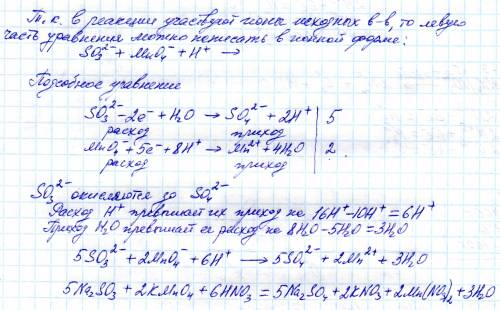 Т.к. в реакции участвуют ионы исходных в-в, то левую
часть уравнения можно написать в ионной форме:
SO₃²⁻ + MnO₄⁻ + H⁺ →
Подробное уравнение
SO₃²⁻ - 2e⁻ + H₂O → SO₄²⁻ + 2H⁺ | 5
расход приход
MnO₄⁻ + 5e⁻ + 8H⁺ → Mn²⁺ + 4H₂O | 2
расход приход
SO₃²⁻ окисляются до SO₄²⁻
Расход H⁺ превышает их приход на 16H⁺ - 10H⁺ = 6H⁺
Приход H₂O превышает её расход на 8H₂O - 5H₂O = 3H₂O
5SO₃²⁻ + 2MnO₄⁻ + 6H⁺ → 5SO₄²⁻ + 2Mn²⁺ + 3H₂O
5Na₂SO₃ + 2KMnO₄ + 6HNO₃ = 5Na₂SO₄ + 2KNO₃ + 2Mn(NO₃)₂ + 3H₂O